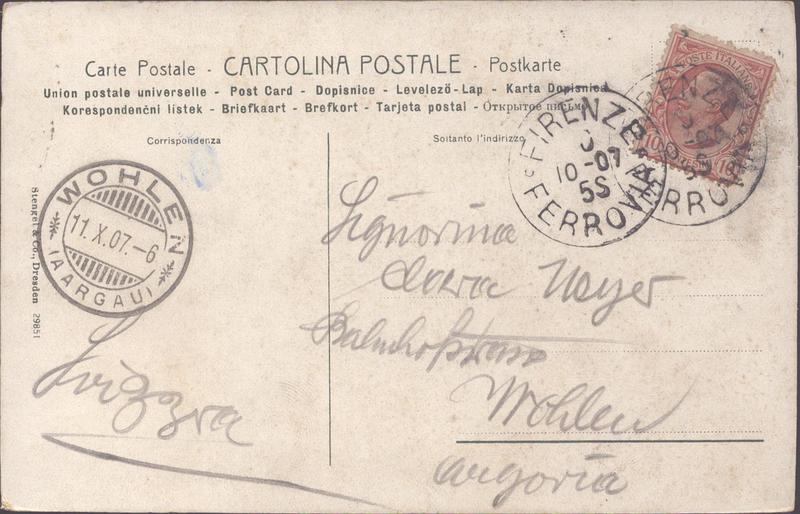 Carte Postale - CARTOLINA POSTALE - Postkarte
Union postale universelle - Post Card - Dopisnice - Levelező-Lap - Karta Dopisnica
Korespondenční lístek - Briefkaart - Brefkort - Tarjeta postal - Открытое письмо
Corrispondenza
Soltanto l'indirizzo
POSTE ITALIANE
10
FIRENZE
10 -07
5S
FERROVIA
WOHLEN
11.X.07.-6
(AARGAU)
Stengel & Co., Dresden 29851
Signorina
Meyer
Bahnhofstrasse
Wohlen
Argovia
Svizzra